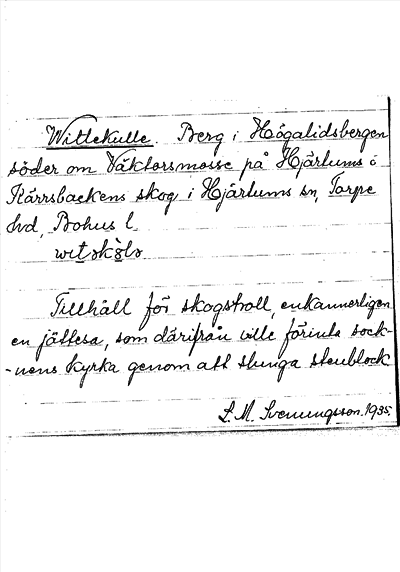 Wittekulle. Berg i Högalidsbergen
söder om Väktorsmosse på Hjärtums ö
Kärrsbackens skog i Hjärtums sn, Torpe
hd, Bohus l.
witskùlə
Tillhåll för skogstroll, enkannerligen
en jättesa, som därifrån ville förinta sock-
-nens kyrka genom att slunga stenblock
S. M. Svenungsson. 1935.